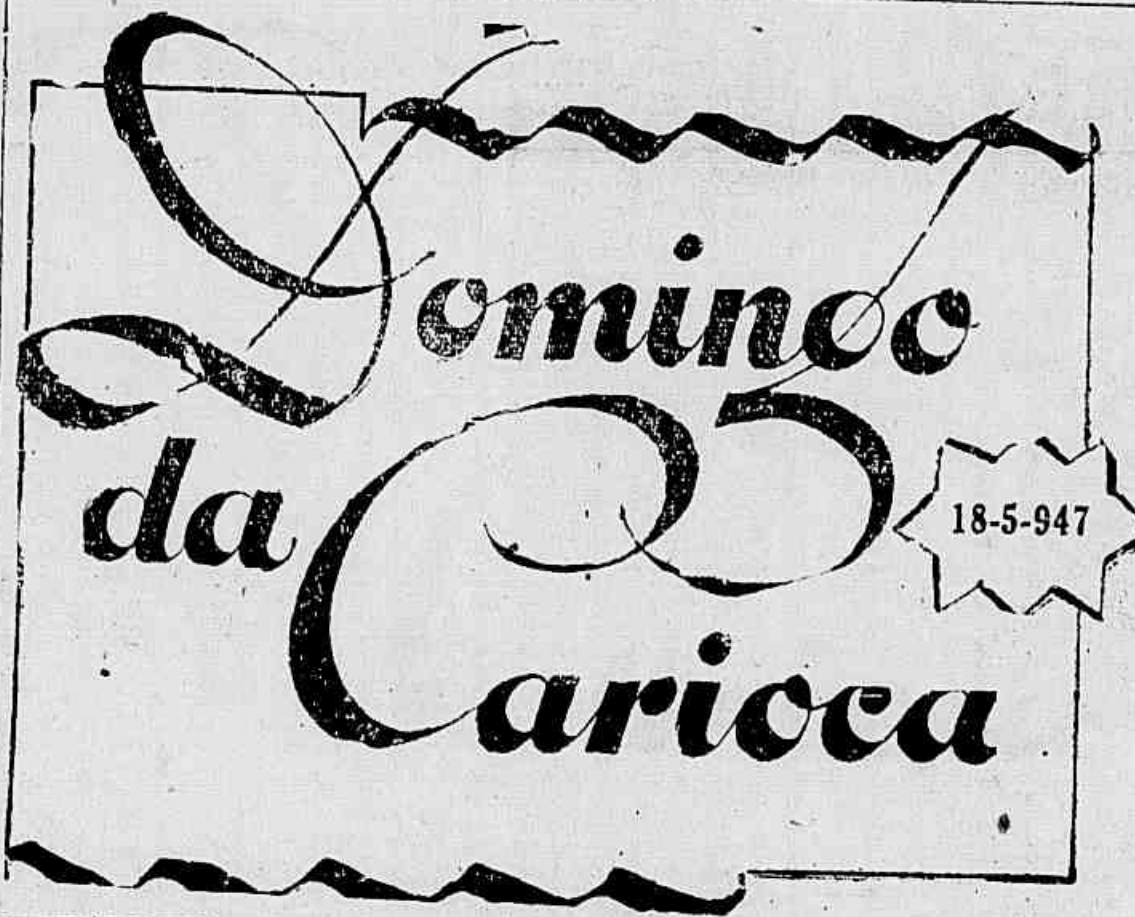 Domingo
da
Carioca
18-5-947